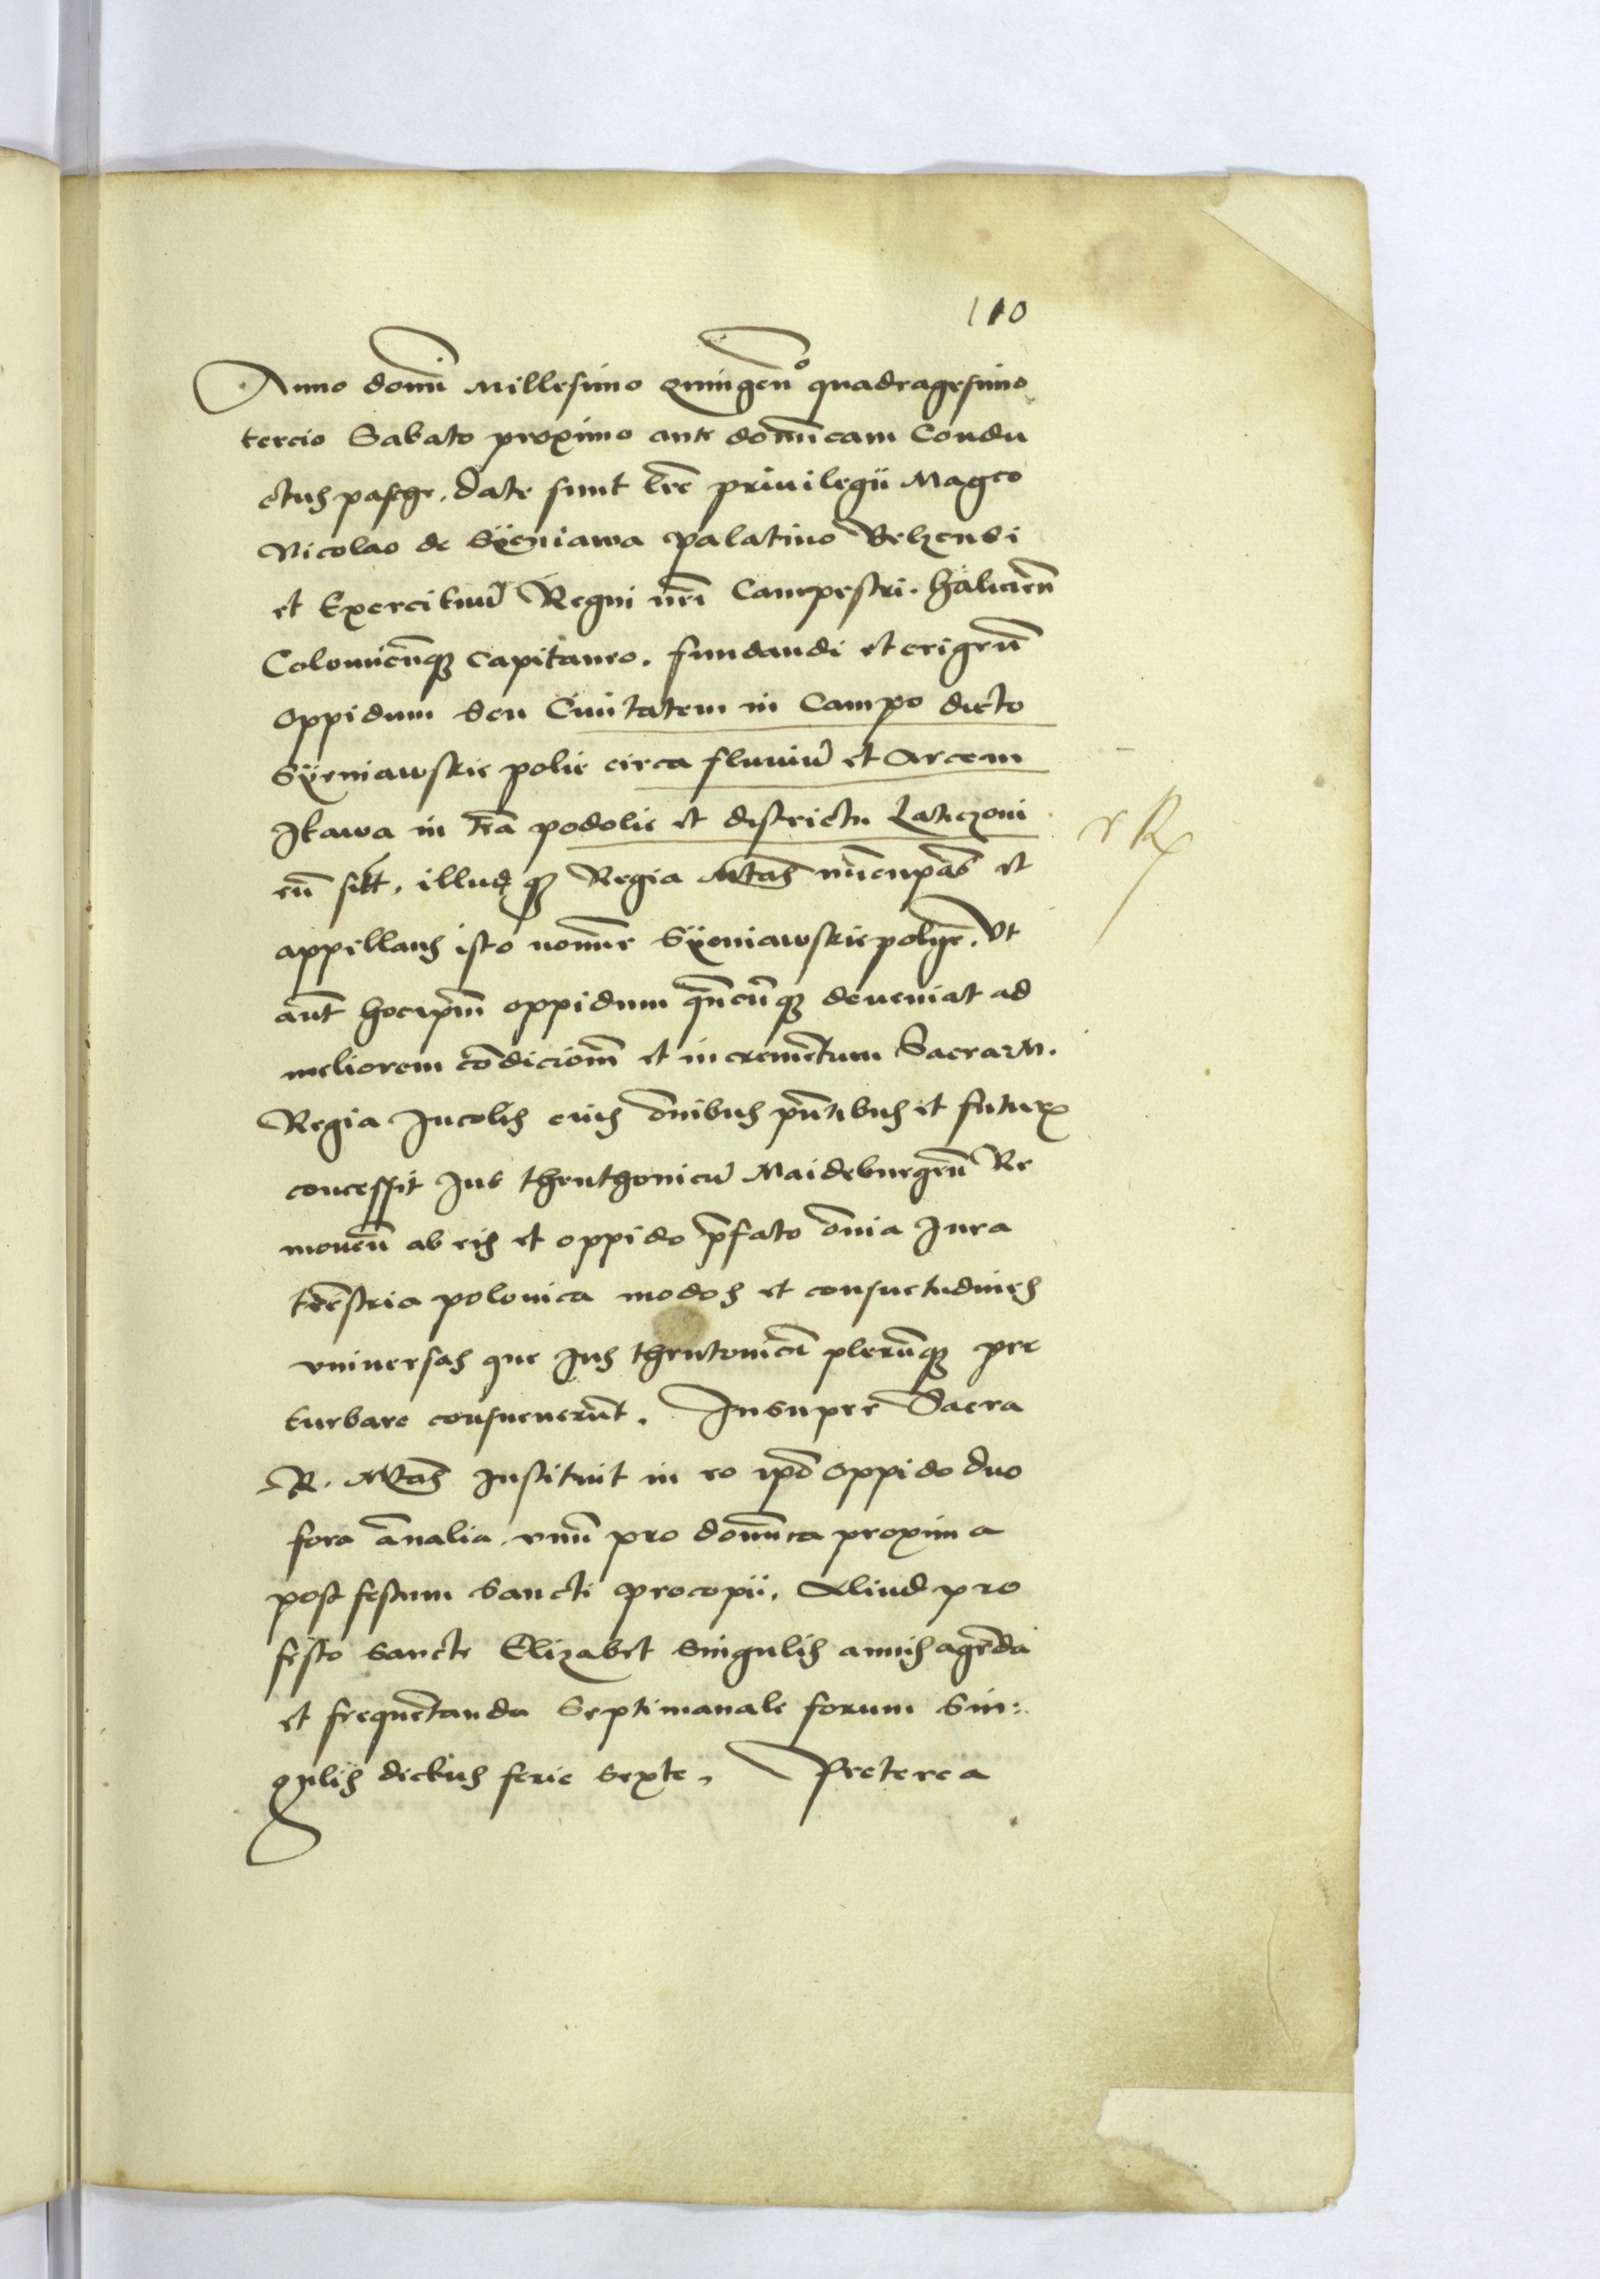 110
Anno domi Millesimo Quingeno quadragesimo
tercio Sabato proximo ante dominicam Condu
ctus pasche. Date sunt lre priuilegii Magco
Nicolao de Syeniawa palatino Belzensi
et Exercituu Regni nri Campestri. halicien
Colomienque Capitaneo. fundandi et erigen
oppidum seu Ciuitatem in Campo dicto
Syeniawskie polie circa fluuiu et Arcem
Ikawa in tra podolie et districtu Laticzoni
en sitt, illudque Regia Mtas nuncupas et
appellans isto nomine Syeniawskiepolye. Vt
aut hocipm oppidum quncunque deueniat ad
meliorem condiciom et incrementum Sacra M.
Regia Incolis eius omibus pntibus et futur
concessit Jus theuthonicu Maideburgen Re
mouen ab eis et oppido pfato omia Jura
trestria polonica modos et consuetudines
vniuersas que Jus theutonicu plerunque per
turbare consueuerunt. Insuper Sacra
R. Mtas Instituit in eo ipo oppido duo
fora annalia. vnu pro dominica proxima
post festum Sancti procopii. Aliud pro
festo sancte Elizabet singulis annis agenda
et frequentanda Septimanale forum Sin:
gulis diebus ferie sexte. Preterea